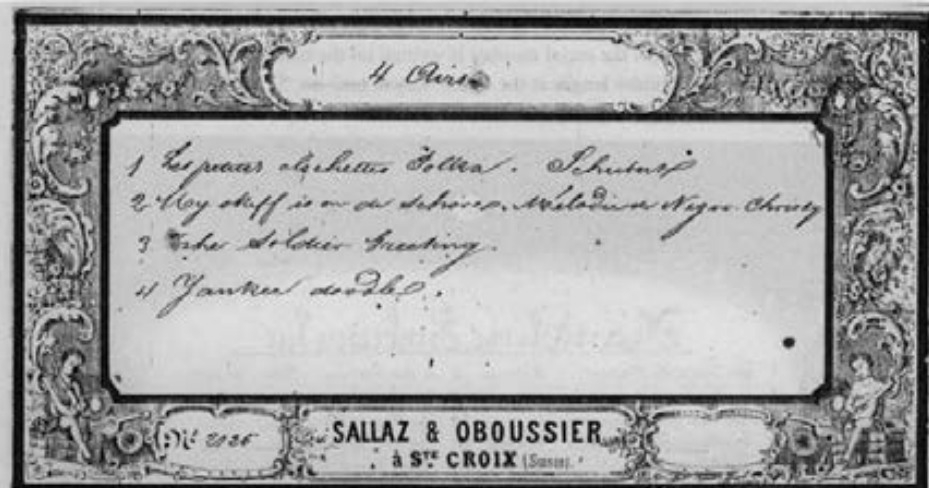 4 Airs
1 Les petites clochettes Polka. Schubert
2 My skiff is on de schore. Mélodie de Negro Christy
3 The Soldier Greeting.
4 Yankee doodle.
Nº 2025
SALLAZ & OBOUSSIER
à STE CROIX (Suisse).